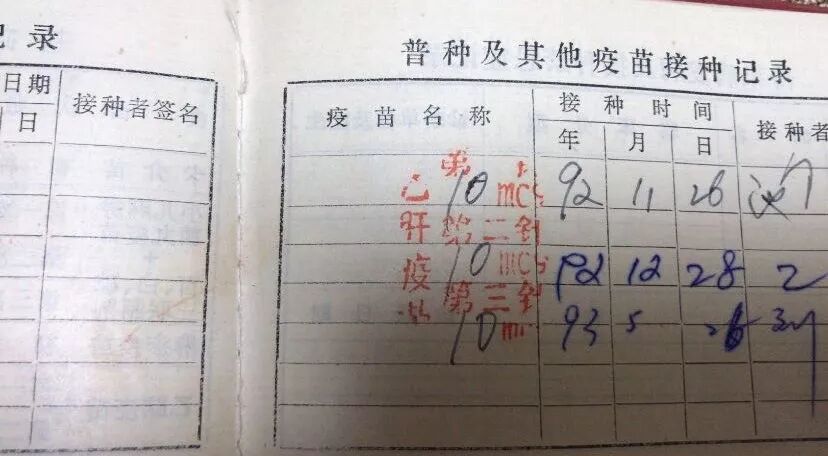 记录
日期
接种者签名
日
普种及其他疫苗接种记录
疫苗名称
接种时间
接种者
年 月 日
乙肝疫苗
第
10 mcg 92 11 26
第二针
10 mcg 92 12 28
第三针
10 93 5 26